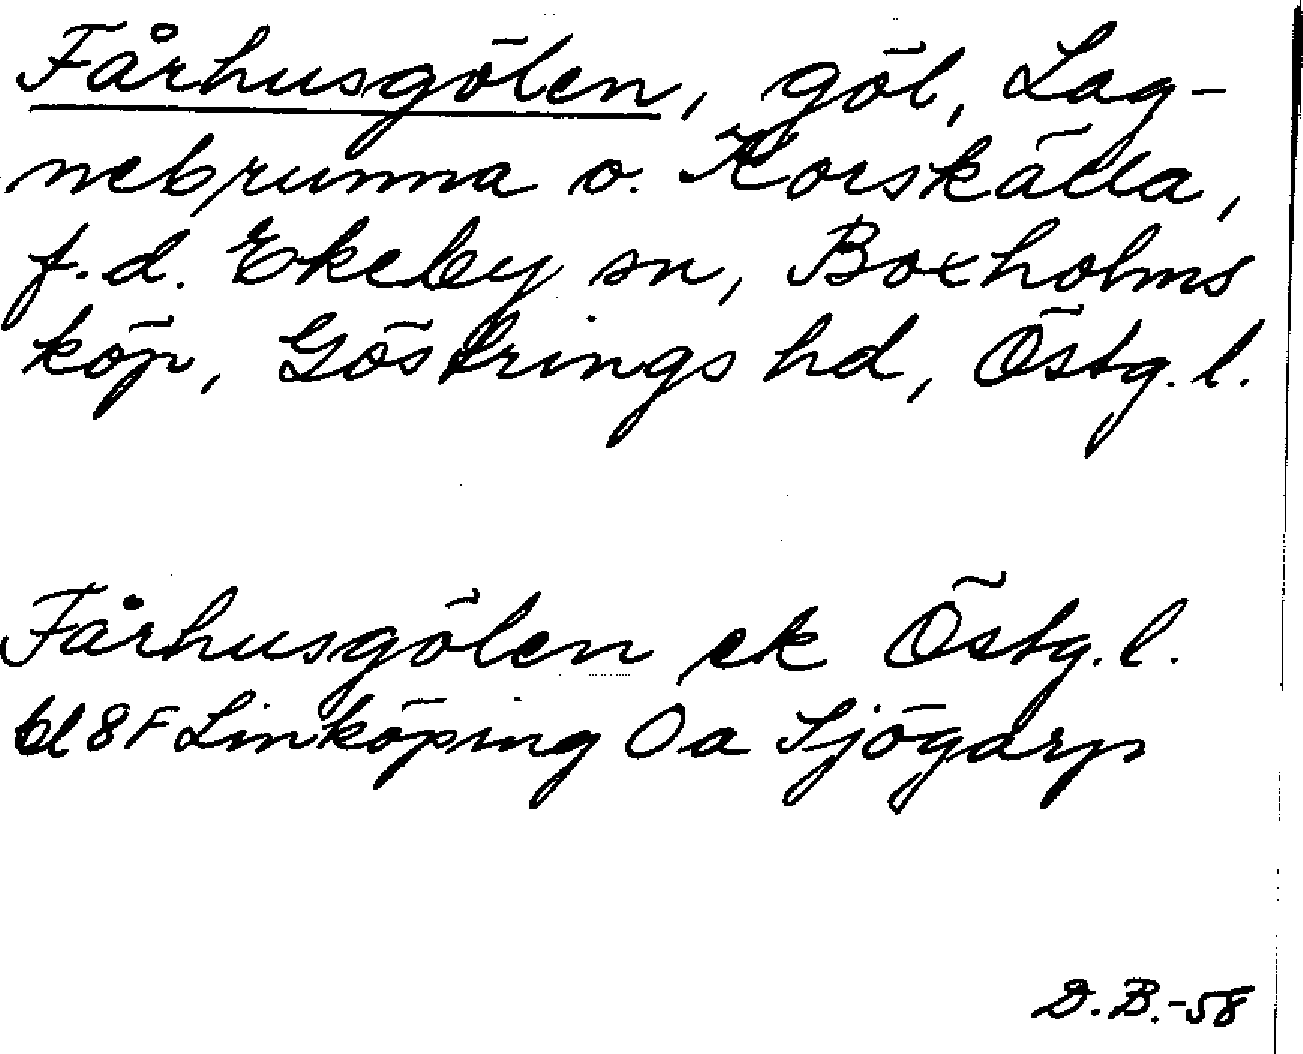 Fårhusgölen, göl, Lag-
nebrunna o. Korskälla,
f.d. Ekeby sn, Boxholms
köp, Göstrings hd, Östg. l.
Fårhusgölen ek Östg. l.
bl 8F Linköping Öa Sjögarp
D.B.-58